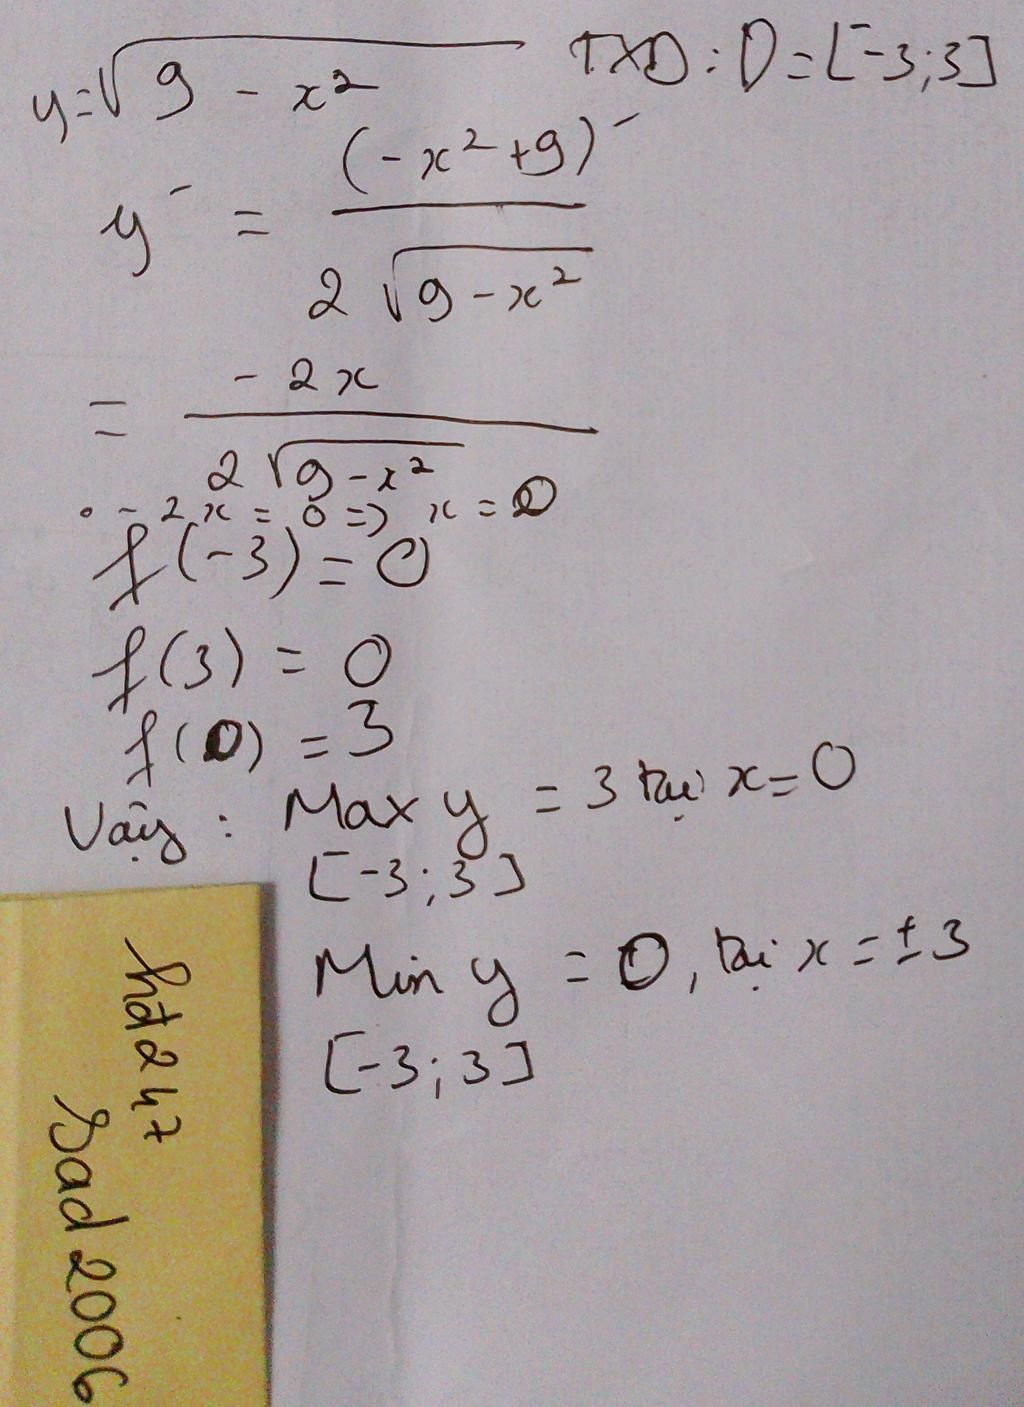 y=√9 - x² TXD : D = [-3;3]
(-x²+9)'
y' =
2 √9-x²
- 2x
=
2 √9-x²
• -2x = 0 => x = 0
f(-3) = 0
f(3) = 0
f(0) = 3
Vậy : Max y = 3 tại x=0
[-3;3]
Min y = 0, tại x = ±3
[-3;3]
hđ247
Sad2006